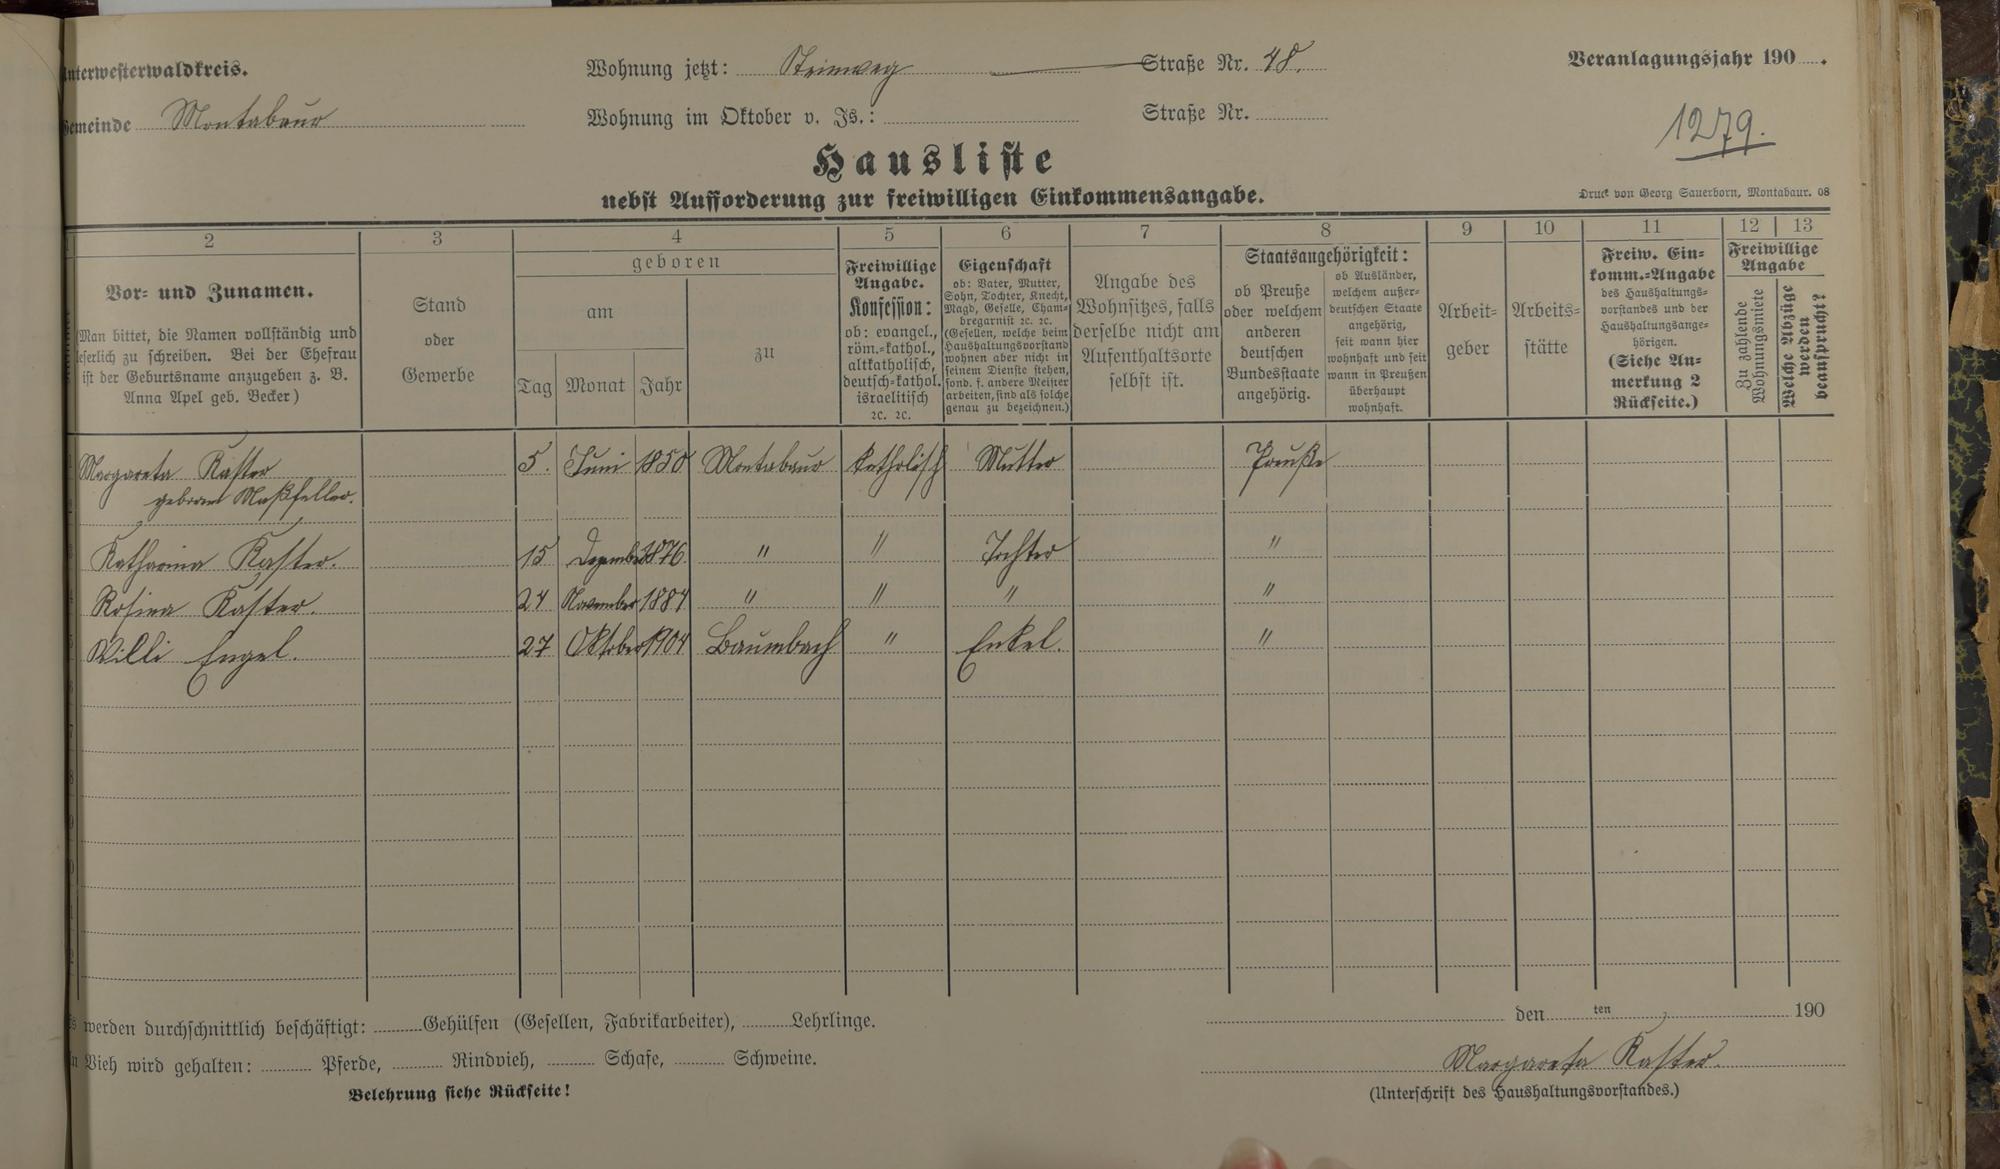 Unterwesterwaldkreis.
Wohnung jetzt: Steinweg Straße Nr. 48.
Veranlagungsjahr 190 .
Gemeinde Montabaur
Wohnung im Oktober v. Js.: Straße Nr.
1279.
Hausliste
nebst Aufforderung zur freiwilligen Einkommensangabe.
Druck von Georg Sauerborn, Montabaur. 08
2 3 4 5 6 7 8 9 10 11 12 13
Vor- und Zunamen.
Man bittet, die Namen vollständig und
leserlich zu schreiben. Bei der Ehefrau
ist der Geburtsname anzugeben z. B.
Anna Apel geb. Becker)
Stand
oder
Gewerbe
geboren
am
Tag Monat Jahr
zu
Freiwillige
Angabe.
Konfession:
ob: evangel.,
röm.-kathol.,
altkatholisch,
deutsch-kathol.
israelitisch
2c. 2c.
Eigenschaft
ob: Vater, Mutter,
Sohn, Tochter, Knecht,
Magd, Geselle, Cham-
bregarnist 2c. 2c.
(Gesellen, welche beim
Haushaltungsvorstand
wohnen aber nicht in
seinem Dienste stehen,
sond. f. andere Meister
arbeiten, sind als solche
genau zu bezeichnen.)
Angabe des
Wohnsitzes, falls
derselbe nicht am
Aufenthaltsorte
selbst ist.
Staatsangehörigkeit:
ob Preuße
oder welchem
anderen
deutschen
Bundesstaate
angehörig.
ob Ausländer,
welchem außer-
deutschen Staate
angehörig,
seit wann hier
wohnhaft und seit
wann in Preußen
überhaupt
wohnhaft.
Arbeit-
geber
Arbeits-
stätte
Freiw. Ein-
komm.-Angabe
des Haushaltungs-
vorstandes und der
Haushaltungsange-
hörigen.
(Siehe An-
merkung 2
Rückseite.)
Freiwillige
Angabe
Zu zahlende
Wohnungsmiete
Welche Abzüge
werden
beansprucht?
Margareta Kaster 5. Juni 1850 Montabaur katholisch Mutter Preuße
geboren Maßfeller.
Katharina Kaster. 15 Dezember 1876 " " Tochter "
Rosina Kaster. 24 November 1884 " " " "
Willi Engel. 27 Oktober 1904 Baumbach " Enkel. "
werden durchschnittlich beschäftigt: Gehülfen (Gesellen, Fabrikarbeiter), Lehrlinge.
den ten 190
Vieh wird gehalten: Pferde, Rindvieh, Schafe, Schweine.
Margareta Kaster.
Belehrung siehe Rückseite!
(Unterschrift des Haushaltungsvorstandes.)